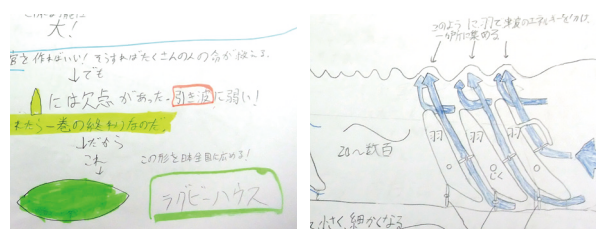 大!
作ればいい! そうすればたくさんの人の命が救える。
↓でも
には欠点があった。引き波に弱い!
たら一巻の終わりなのだ。
↓だから
これ
この形を日本全国に広める!
ラグビーハウス
このように羽で津波のエネルギーを
一か所に集める
羽 羽 羽
20〜数百
小さく、細かくなる